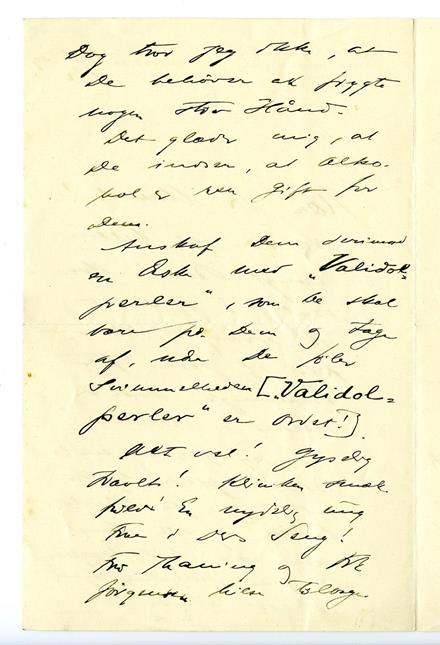 Dog tror jeg ikke, at
De behøver at frygte
nogen stor Hånd.
Det glæder mig, at
De indser, at Alko-
hol er ren Gift for
Dem.
Anskaf Dem derimod
en Eske med „Validol=
perler", som De skal
bære på Dem og tage
af, når De føler
Svimmelheden [„Validol=
perler" er Ordet!].
Alt vel! Gyselig
travlt! Kliniken
En nydelig ung
Frue i Deres Seng!
Frø Thaning og Frk
Jørgensen hilse